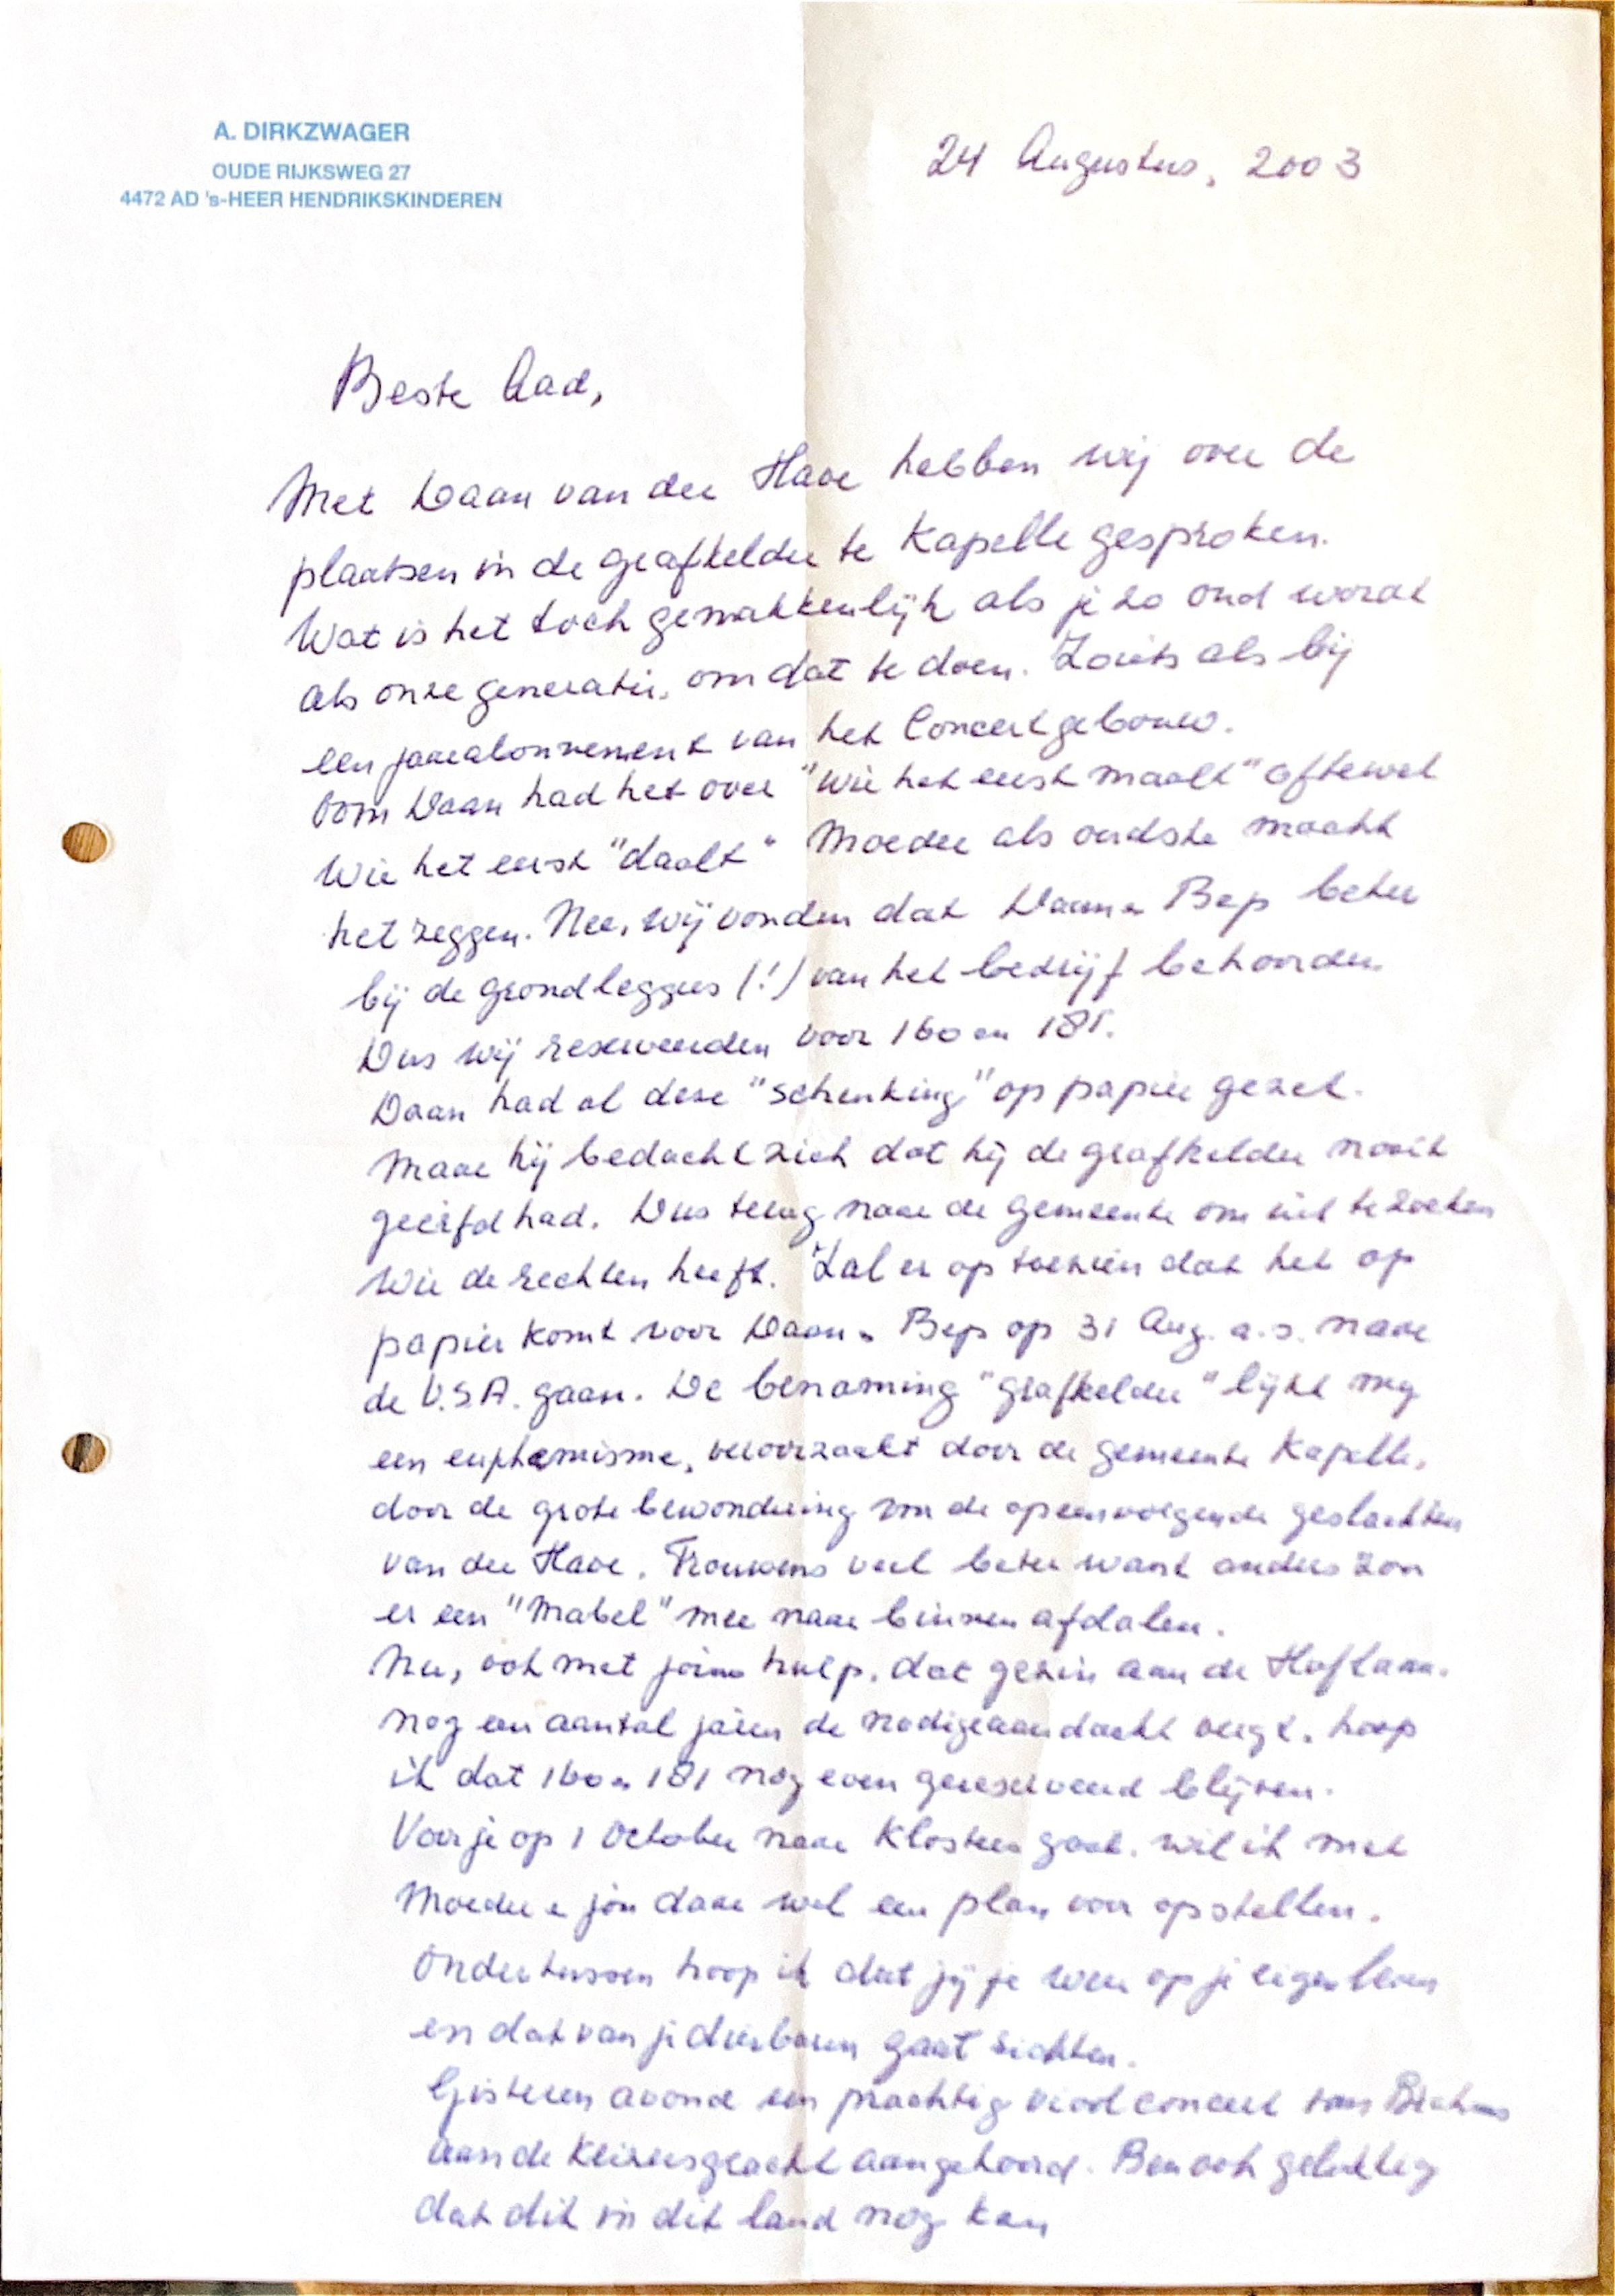 A. DIRKZWAGER
OUDE RIJKSWEG 27
4472 AD 's-HEER HENDRIKSKINDEREN
24 Augustus, 2003
Beste Aad,
Met Daan van der Have hebben wij over de
plaatsen in de grafkelder te Kapelle gesproken.
Wat is het toch gemakkenlijk als je zo oud wordt
als onze generatie, om dat te doen. Zoiets als bij
een jaarabonnement van het Concertgebouw.
Oom Daan had het over "wie het eerst maalt" oftewel
wie het eerst "daalt" Moeder als oudste mocht
het zeggen. Nee, wij vonden dat Daan en Bep beter
bij de grondleggers (!) van het bedrijf behoorden.
Dus wij reserveerden voor 160 en 181.
Daan had al deze "schenking" op papier gezet.
Maar hij bedacht zich dat hij de grafkelder nooit
geërfd had. Dus terug naar de gemeente om uit te zoeken
wie de rechten heeft. Zal er op toezien dat het op
papier komt voor Daan en Bep op 31 Aug. a.s. naar
de U.S.A. gaan. De benaming "grafkelder" lijkt mij
een euphemisme, veroorzaakt door de gemeente Kapelle,
door de grote bewondering van de opeenvolgende geslachten
van der Have. Trouwens veel beter want anders zou
er een "Mabel" mee naar binnen afdalen.
Nu, ook met jouw hulp, dat gezin aan de Hoflaan
nog een aantal jaren de nodige aandacht vergt, hoop
ik dat 160 en 181 nog even gereserveerd blijven.
Voor je op 1 October naar Klosters gaat, wil ik met
Moeder en jou daar wel een plan voor opstellen.
Ondertussen hoop ik dat jij je weer op je eigen leven
en dat van je dierbaren gaat richten.
Gisteren avond een prachtig vioolconcert van Brahms
aan de Keizersgracht aangehoord. Ben ook gelukkig
dat dit in dit land nog kan